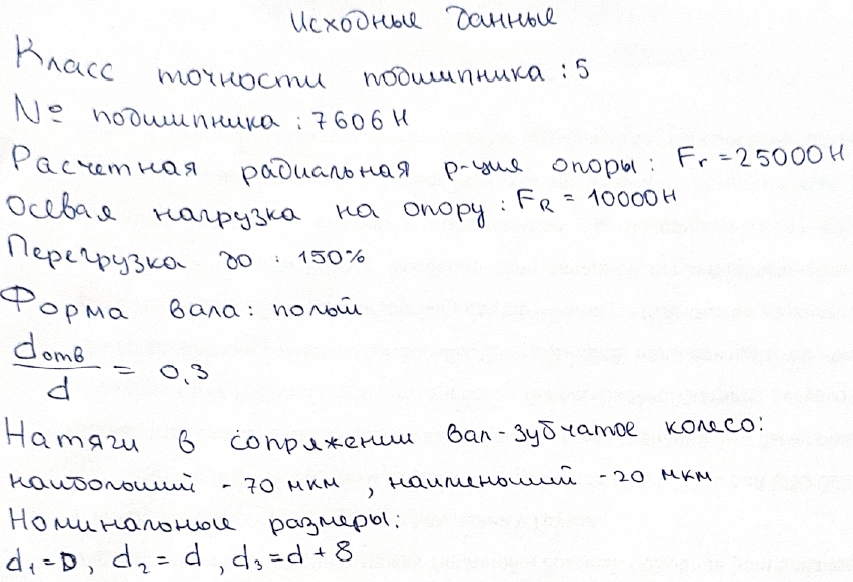 Исходные данные
Класс точности подшипника : 5
№ подшипника : 7606Н
Расчетная радиальная р-ция опоры : Fr = 25000Н
Осевая нагрузка на опору : FR = 10000Н
Перегрузка до : 150%
Форма вала : полый
dотв/d = 0,3
Натяги в сопряжении вал-зубчатое колесо:
наибольший - 70 мкм, наименьший - 20 мкм
Номинальные размеры:
d1 = D, d2 = d, d3 = d + 8